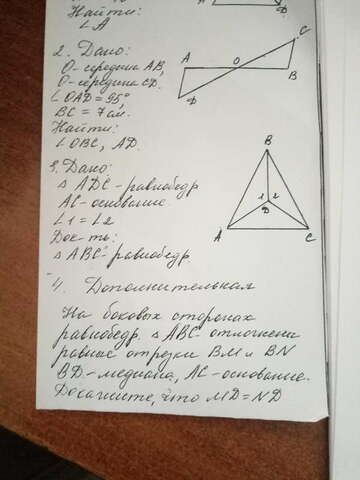 Найти:
∠A
2. Дано:
O-середина AB,
O-середина CD.
∠OAD = 95°
BC = 7см.
Найти:
∠OBC, AD.
A
O
B
C
D
3. Дано:
△ ADC - равнобедр
AC - основание.
∠1 = ∠2
Док-ть:
△ ABC - равнобедр.
B
1 2
D
A
C
4. Дополнительная
На боковых сторонах
равнобедр. △ ABC - отложены
равные отрезки BM и BN
BD - медиана, AC - основание.
Докажите, что MD = ND